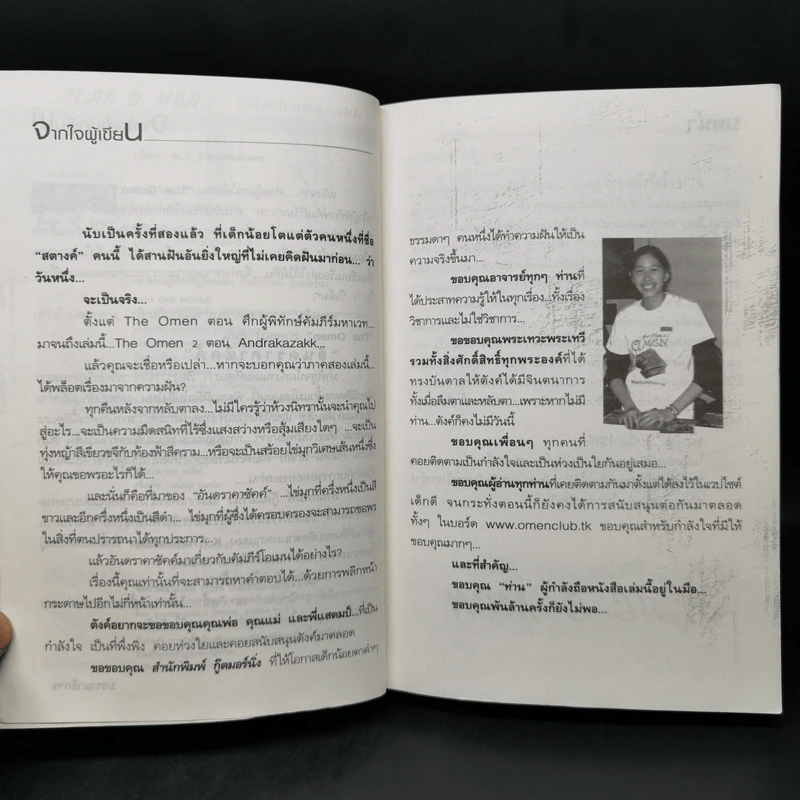 จากใจผู้เขียน
นับเป็นครั้งที่สองแล้ว ที่เด็กน้อยโตแต่ตัวคนหนึ่งที่ชื่อ
“สตางค์” คนนี้ ได้สานฝันอันยิ่งใหญ่ที่ไม่เคยคิดฝันมาก่อน... ว่า
วันหนึ่ง...
จะเป็นจริง...
ตั้งแต่ The Omen ตอน ศึกผู้พิทักษ์คัมภีร์มหาเวท...
มาจนถึงเล่มนี้...The Omen 2 ตอน Andrakazakk...
แล้วคุณจะเชื่อหรือเปล่า...หากจะบอกคุณว่าภาคสองเล่มนี้...
ได้พล็อตเรื่องมาจากความฝัน?
ทุกคืนหลังจากหลับตาลง...ไม่มีใครรู้ว่าห้วงนิทรานั้นจะนำคุณไป
สู่อะไร...จะเป็นความมืดสนิทที่ไร้ซึ่งแสงสว่างหรือสุ้มเสียงใดๆ ...จะเป็น
ทุ่งหญ้าสีเขียวขจีกับท้องฟ้าสีคราม...หรือจะเป็นสร้อยไข่มุกวิเศษเส้นหนึ่งซึ่ง
ให้คุณขอพรอะไรก็ได้...
และนั่นก็คือที่มาของ “อันดราคาซัคค์” ...ไข่มุกที่ครึ่งหนึ่งเป็นสี
ขาวและอีกครึ่งหนึ่งเป็นสีดำ... ไข่มุกที่ผู้ซึ่งได้ครอบครองจะสามารถขอพร
ในสิ่งที่ตนปรารถนาได้ทุกประการ...
แล้วอันดราคาซัคค์มาเกี่ยวกับคัมภีร์โอเมนได้อย่างไร?
เรื่องนี้คุณเท่านั้นที่จะสามารถหาคำตอบได้...ด้วยการพลิกหน้า
กระดาษไปอีกไม่กี่หน้าเท่านั้น...
ตังค์อยากจะขอขอบคุณคุณพ่อ คุณแม่ และพี่แสตมป์...ที่เป็น
กำลังใจ เป็นที่พึ่งพิง คอยห่วงใยและคอยสนับสนุนตังค์มาตลอด
ขอขอบคุณ สำนักพิมพ์ กู๊ดมอร์นิ่ง ที่ให้โอกาสเด็กน้อยตาดำๆ
ธรรมดาๆ คนหนึ่งได้ทำความฝันให้เป็น
ความจริงขึ้นมา...
ขอบคุณอาจารย์ทุกๆ ท่านที่
ได้ประสาทความรู้ให้ในทุกเรื่อง...ทั้งเรื่อง
วิชาการและไม่ใช้วิชาการ...
ขอขอบคุณพระเทวะพระเทวี
รวมทั้งสิ่งศักดิ์สิทธิ์ทุกพระองค์ที่ได้
ทรงบันดาลให้ตังค์ได้มีจินตนาการ
ทั้งเมื่อลืมตาและหลับตา...เพราะหากไม่มี
ท่าน...ตังค์ก็คงไม่มีวันนี้
ขอบคุณเพื่อนๆ ทุกคนที่
คอยติดตามเป็นกำลังใจและเป็นห่วงเป็นใยกันอยู่เสมอ...
ขอบคุณผู้อ่านทุกท่านที่เคยติดตามกันมาตั้งแต่ได้ลงไว้ในเวปไซต์
เด็กดี จนกระทั่งตอนนี้ก็ยังคงได้การสนับสนุนต่อกันมาตลอด
ทั้งๆ ในบอร์ด www.omenclub.tk ขอบคุณสำหรับกำลังใจที่มีให้
ขอบคุณมากๆ...
และที่สำคัญ...
ขอบคุณ “ท่าน” ผู้กำลังถือหนังสือเล่มนี้อยู่ในมือ...
ขอบคุณพันล้านครั้งก็ยังไม่พอ...